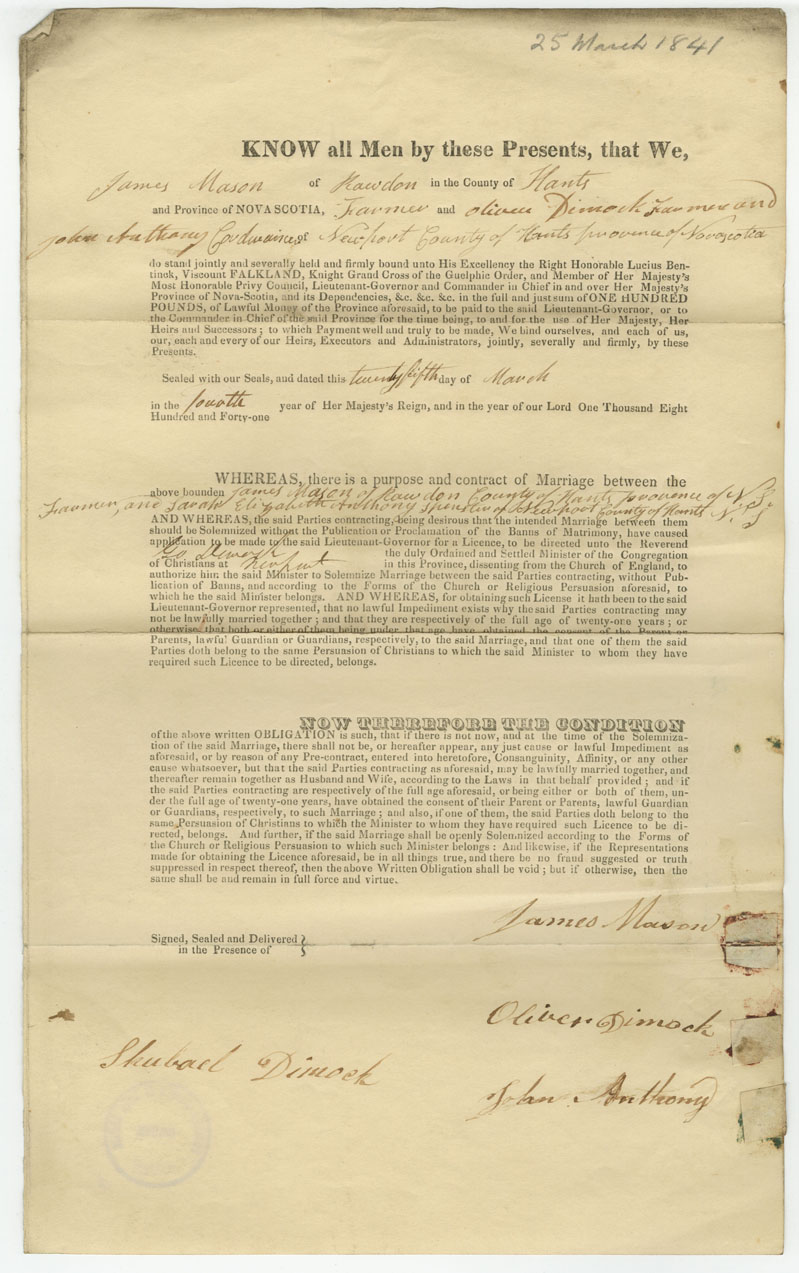 25 March 1841
KNOW all Men by these Presents, that We,
James Mason of Rawdon in the County of Hants
and Province of NOVA SCOTIA, Farmer and Oliver Dimock Farmer and
John Anthony Cordwainer of Newport County of Hants province of Novascotia
do stand jointly and severally held and firmly bound unto His Excellency the Right Honorable Lucius Ben-
tinck, Viscount FALKLAND, Knight Grand Cross of the Guelphic Order, and Member of Her Majesty's
Most Honorable Privy Council, Lieutenant-Governor and Commander in Chief in and over Her Majesty's
Province of Nova-Scotia, and its Dependencies, &c. &c. &c. in the full and just sum of ONE HUNDRED
POUNDS, of Lawful Money of the Province aforesaid, to be paid to the said Lieutenant-Governor, or to
the Commander in Chief of the said Province for the time being, to and for the use of Her Majesty, Her
Heirs and Successors; to which Payment well and truly to be made, We bind ourselves, and each of us,
our, each and every of our Heirs, Executors and Administrators, jointly, severally and firmly, by these
Presents.
Sealed with our Seals, and dated this twenty fifth day of March
in the fourth year of Her Majesty's Reign, and in the year of our Lord One Thousand Eight
Hundred and Forty-one
WHEREAS, there is a purpose and contract of Marriage between the
above bounden James Mason of Rawdon County of Hants provence of N S
Farmer, and Sarah Elizabeth Anthony Spinster of Newport County of Hants N. S
AND WHEREAS, the said Parties contracting, being desirous that the intended Marriage between them
should be Solemnized without the Publication or Proclamation of the Banns of Matrimony, have caused
application to be made to the said Lieutenant-Governor for a Licence, to be directed unto the Reverend
Geo Dimock the duly Ordained and Settled Minister of the Congregation
of Christians at Newport in this Province, dissenting from the Church of England, to
authorize him the said Minister to Solemnize Marriage between the said Parties contracting, without Pub-
lication of Banns, and according to the Forms of the Church or Religious Persuasion aforesaid, to
which he the said Minister belongs. AND WHEREAS, for obtaining such License it hath been to the said
Lieutenant-Governor represented, that no lawful Impediment exists why the said Parties contracting may
not be lawfully married together; and that they are respectively of the full age of twenty-one years; or
otherwise, that both or either of them being under that age have obtained the consent of the Parent or
Parents, lawful Guardian or Guardians, respectively, to the said Marriage, and that one of them the said
Parties doth belong to the same Persuasion of Christians to which the said Minister to whom they have
required such Licence to be directed, belongs.
NOW THEREFORE THE CONDITION
of the above written OBLIGATION is such, that if there is not now, and at the time of the Solemniza-
tion of the said Marriage, there shall not be, or hereafter appear, any just cause or lawful Impediment as
aforesaid, or by reason of any Pre-contract, entered into heretofore, Consanguinity, Affinity, or any other
cause whatsoever, but that the said Parties contracting as aforesaid, may be lawfully married together, and
thereafter remain together as Husband and Wife, according to the Laws in that behalf provided; and if
the said Parties contracting are respectively of the full age aforesaid, or being either or both of them, un-
der the full age of twenty-one years, have obtained the consent of their Parent or Parents, lawful Guardian
or Guardians, respectively, to such Marriage; and also, if one of them, the said Parties doth belong to the
same Persuasion of Christians to which the Minister to whom they have required such Licence to be di-
rected, belongs. And further, if the said Marriage shall be openly Solemnized according to the Forms of
the Church or Religious Persuasion to which such Minister belongs: And likewise, if the Representations
made for obtaining the Licence aforesaid, be in all things true, and there be no fraud suggested or truth
suppressed in respect thereof, then the above Written Obligation shall be void; but if otherwise, then the
same shall be and remain in full force and virtue.
James Mason
Signed, Sealed and Delivered
in the Presence of
Oliver Dimock
Shubael Dimock
John Anthony